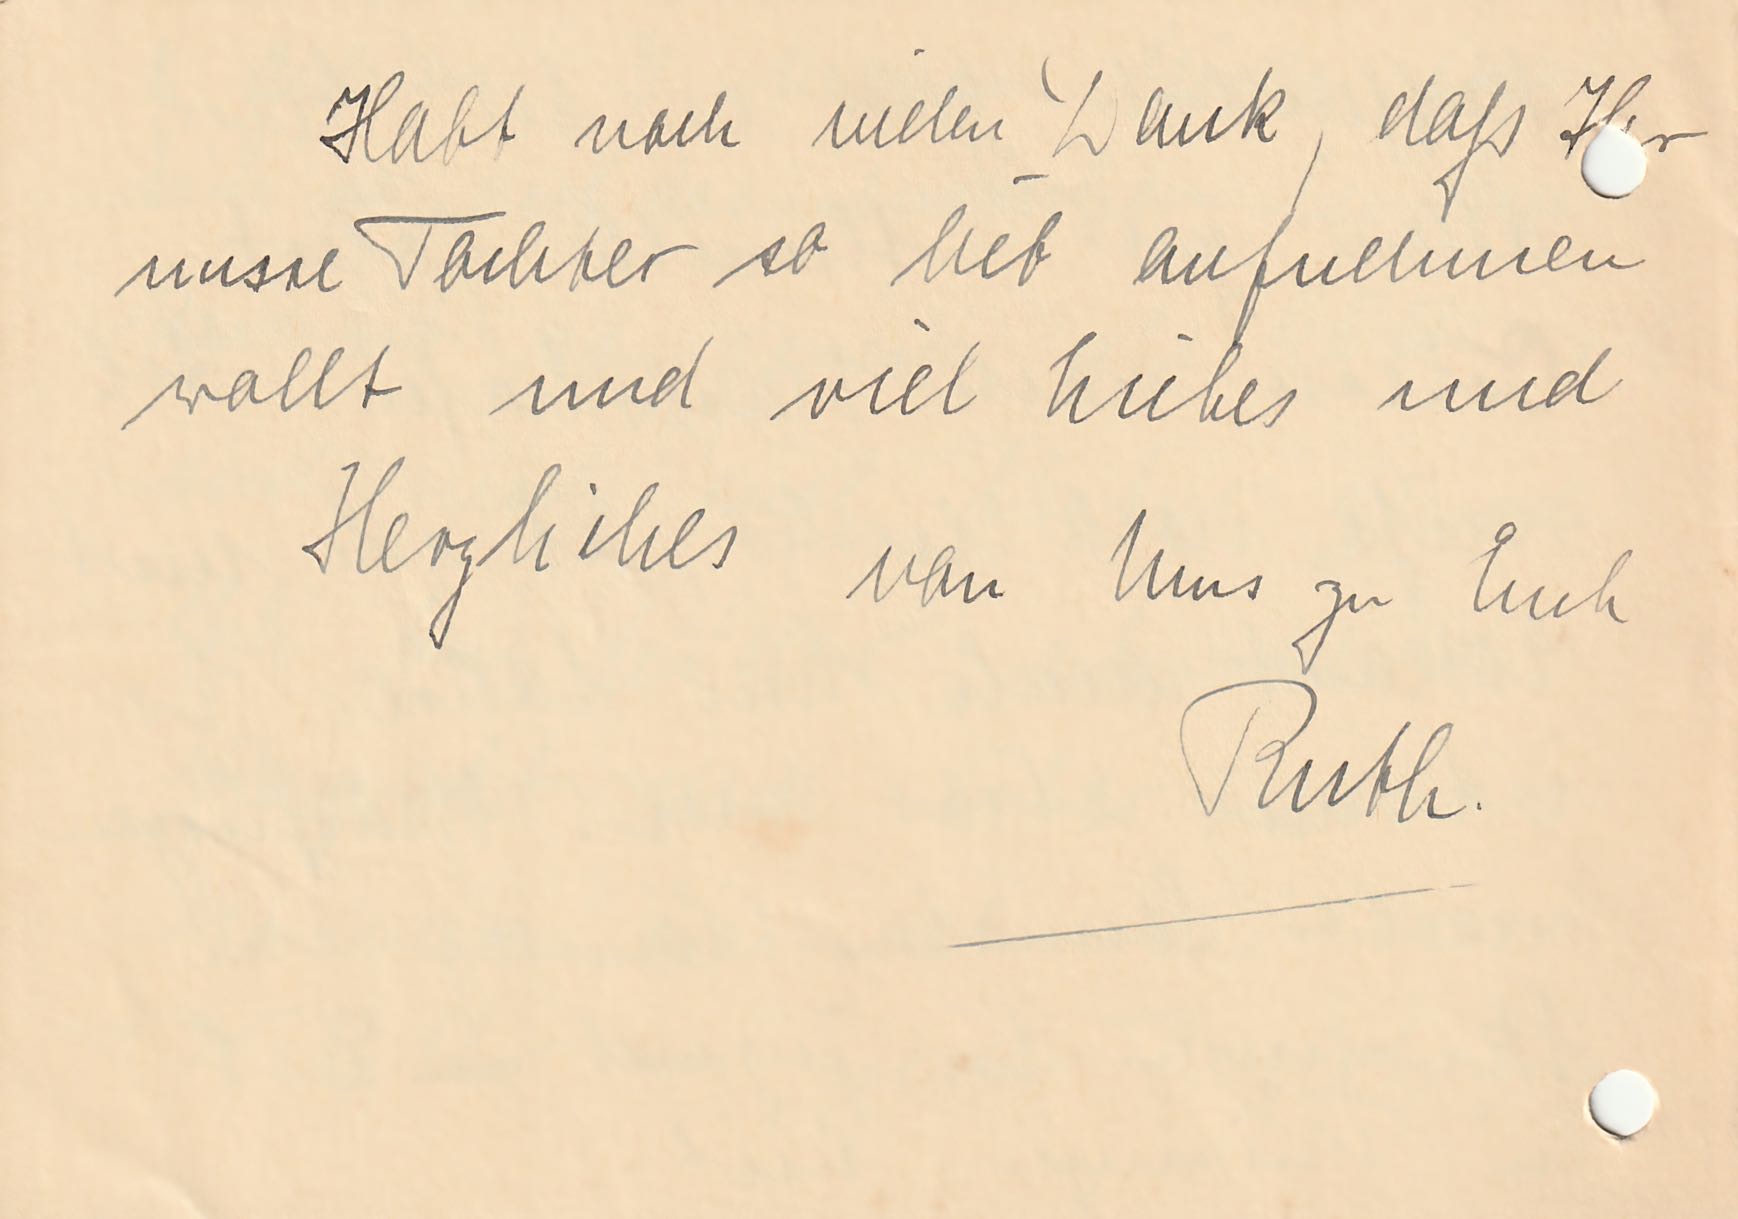 Habt noch vielen Dank, daß Ihr
unsre Tochter so lieb aufnehmen
wollt und viel Liebes und
Herzliches von Uns zu Euch
Ruth.